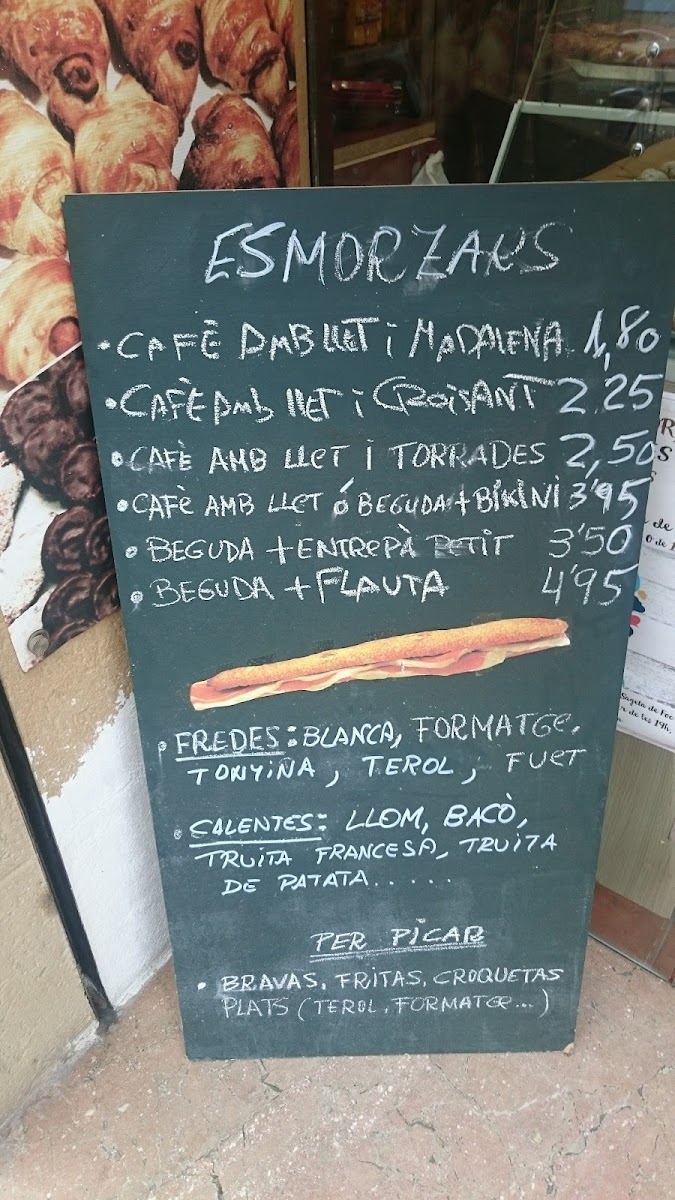 ESMORZARS
• CAFÈ AMB LLET i MADALENA 1,80
• CAFÈ AMB LLET i CROISANT 2.25
• CAFÈ AMB LLET I TORRADES 2,50
• CAFÈ AMB LLET Ó BEGUDA + BIKINI 3'95
• BEGUDA + ENTREPÀ PETIT 3'50
• BEGUDA + FLAUTA 4'95
• FREDES: BLANCA, FORMATGE,
TONYINA, TEROL, FUET
• CALENTES: LLOM, BACÒ,
TRUITA FRANCESA, TRUITA
DE PATATA.....
PER PICAR
• BRAVAS, FRITAS, CROQUETAS
PLATS (TEROL, FORMATGE...)